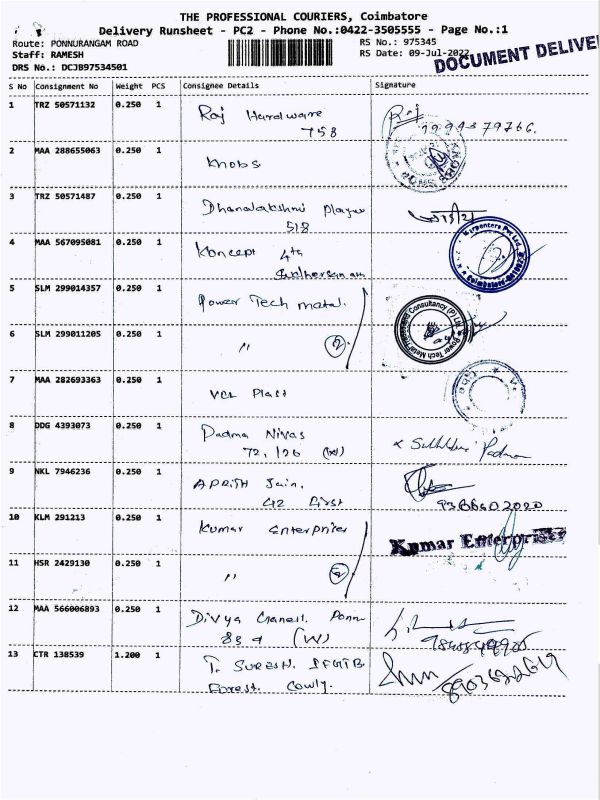 THE PROFESSIONAL COURIERS, Coimbatore
Delivery Runsheet - PC2 - Phone No.:0422-3505555 - Page No.:1
Route: PONNURANGAM ROAD RS No.: 975345
Staff: RAMESH RS Date: 09-Jul-2022
DRS No.: DCJB97534501
DOCUMENT DELIVE
S No Consignment No Weight PCS Consignee Details Signature
1 TRZ 50571132 0.250 1 Raj Hardware
758
2 MAA 288655063 0.250 1 Knobs
3 TRZ 50571487 0.250 1 Dhanalakshmi
518
4 MAA 567095081 0.250 1 Koncept 4th
Carpenters Pvt Ltd.,
Coimbatore
5 SLM 299014357 0.250 1 Power Tech metal.
Power Tech Metal Process and Consultancy (P) Ltd
6 SLM 299011205 0.250 1 〃 2
7 MAA 282693363 0.250 1 VCL Plast
8 DDG 4393073 0.250 1 Padma Nivas
72, / 26 (W) Padma
9 NKL 7946236 0.250 1 Jain,
42 First
10 KLM 291213 0.250 1 Kumar Enterprises
Kumar Enterprises
11 HSR 2429130 0.250 1 〃 2
12 MAA 566006893 0.250 1 Divya Ganesh. Ponn
(W)
13 CTR 138539 1.200 1 T. SURESH. IFGTB
Forest. Cowly.